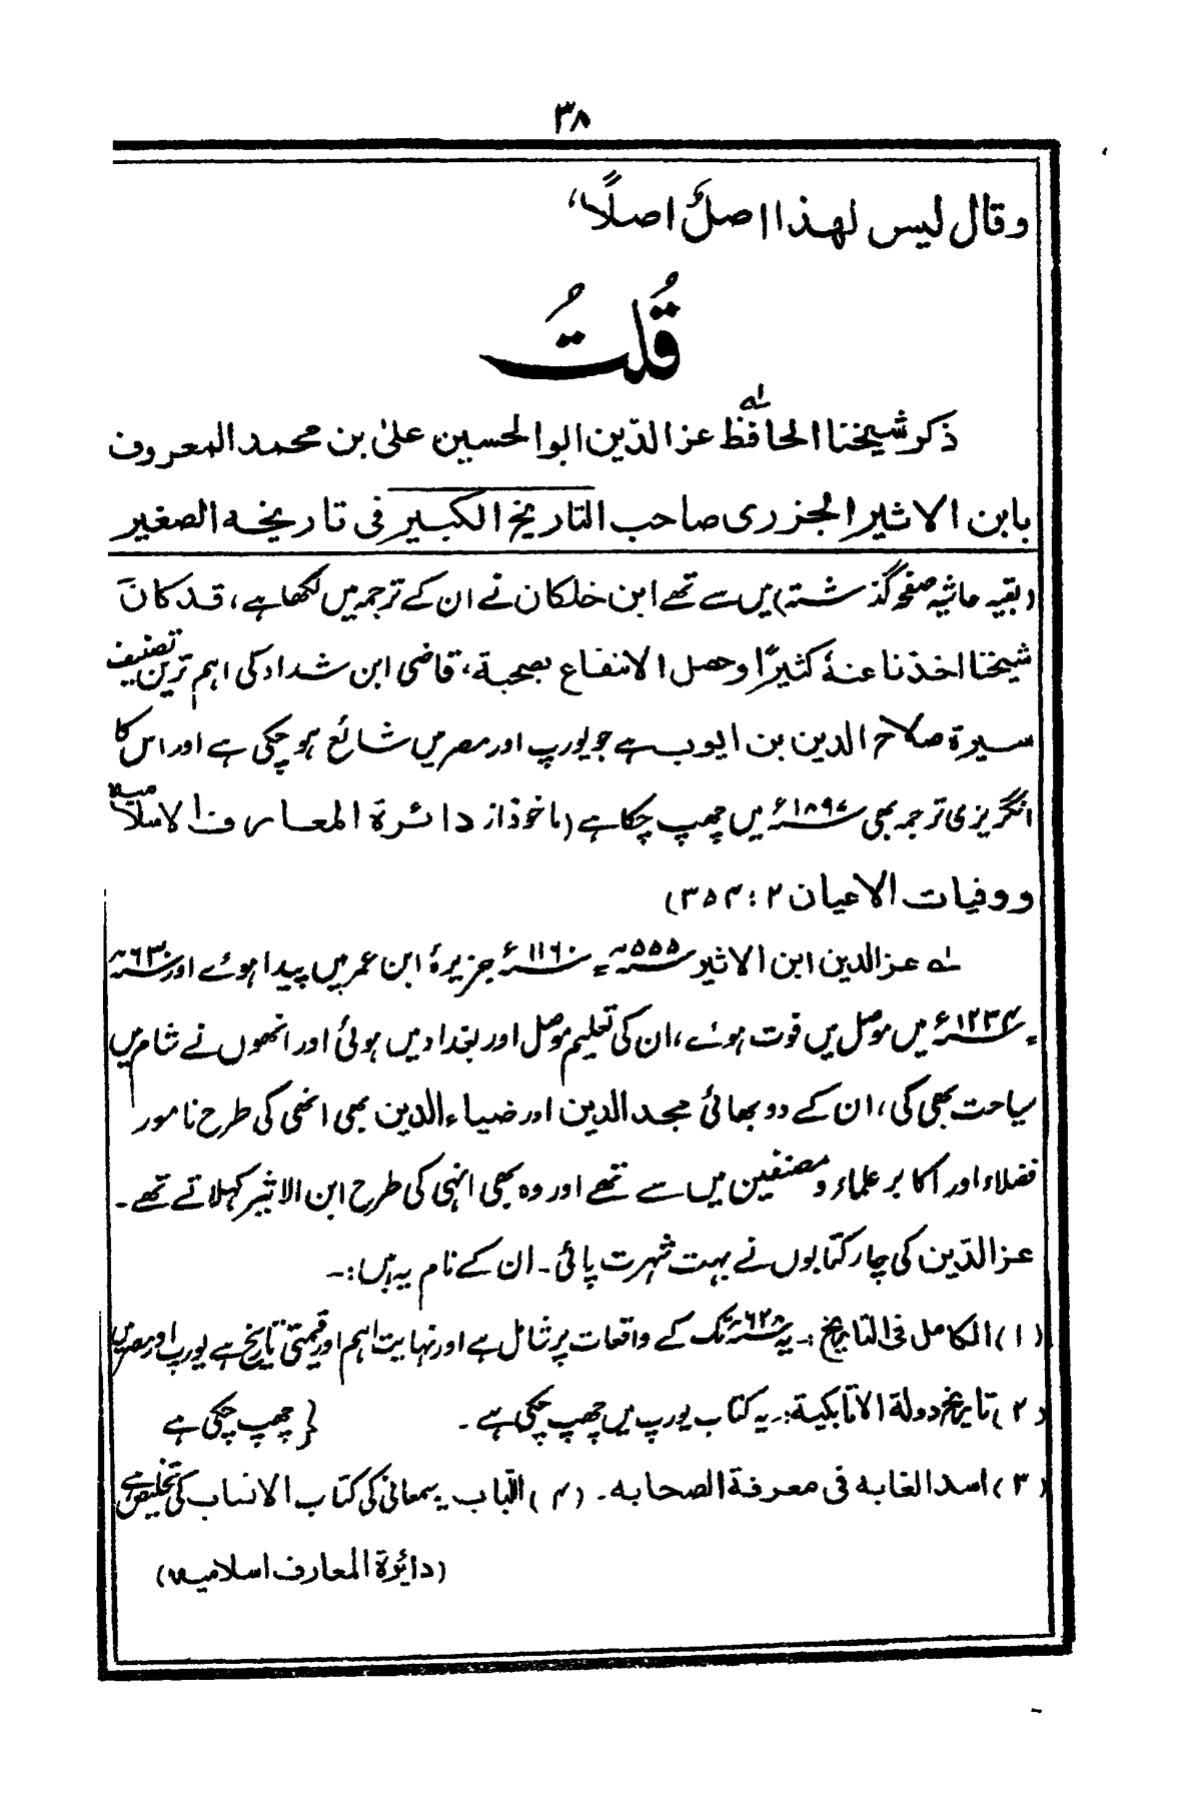 ۳۸
وقال ليس لهذا اصلٌ اصلًا،
قُلتُ
ذكر شيخنا الحافظ لہ عز الدّين ابوالحسين علىٰ بن محمد المعروف
بابن الاثير الجزرى صاحب التاريخ الكبير فى تاريخه الصغير
(بقیہ حاشیہ صفحہ گذشتہ) میں سے تھے ابن خلکان نے ان کے ترجمہ میں لکھا ہے، قد کان
شیخنا اخذنا عنہٗ کثیرًا وحصل الانتفاع بصحبة، قاضی ابن شداد کی اہم ترین تصنیف
سیرة صلاح الدین بن ایوب ہے جو یورپ اور مصر میں شائع ہو چکی ہے اور اس کا
انگریزی ترجمہ بھی ۱۸۹۷ء میں چھپ چکا ہے (ماخوذ از دائرة المعارف الاسلامیہ
ووفیات الاعیان ۲ : ۳۵۴)
لہ عز الدین ابن الاثیر ۵۵۵ھ ۱۱۶۰ء جزیرۂ ابن عمر میں پیدا ہوئے اور ۶۳۰ھ
۱۲۳۴ء میں موصل میں فوت ہوئے، ان کی تعلیم موصل اور بغداد میں ہوئی اور انھوں نے شام میں
سیاحت بھی کی، ان کے دو بھائی مجد الدین اور ضیاء الدین بھی انھی کی طرح نامور
فضلاء اور اکابر علماء و مصنفین میں سے تھے اور وہ بھی انہی کی طرح ابن الاثیر کہلاتے تھے۔
عز الدّین کی چار کتابوں نے بہت شہرت پائی۔ ان کے نام یہ ہیں:۔
(۱) الکامل فی التاریخ :۔ یہ ۶۲۸ھ تک کے واقعات پر شامل ہے اور نہایت اہم اور قیمتی تاریخ ہے یورپ اور مصر میں
(۲) تاریخ دولة الاتابکیة:۔ یہ کتاب یورپ میں چھپ چکی ہے۔ { چھپ چکی ہے
(۳) اسد الغابه فی معرفة الصحابه۔ (۴) اللّباب یہ سمعانی کی کتاب الانساب کی تلخیص ہے
(دائرة المعارف اسلامیہ)